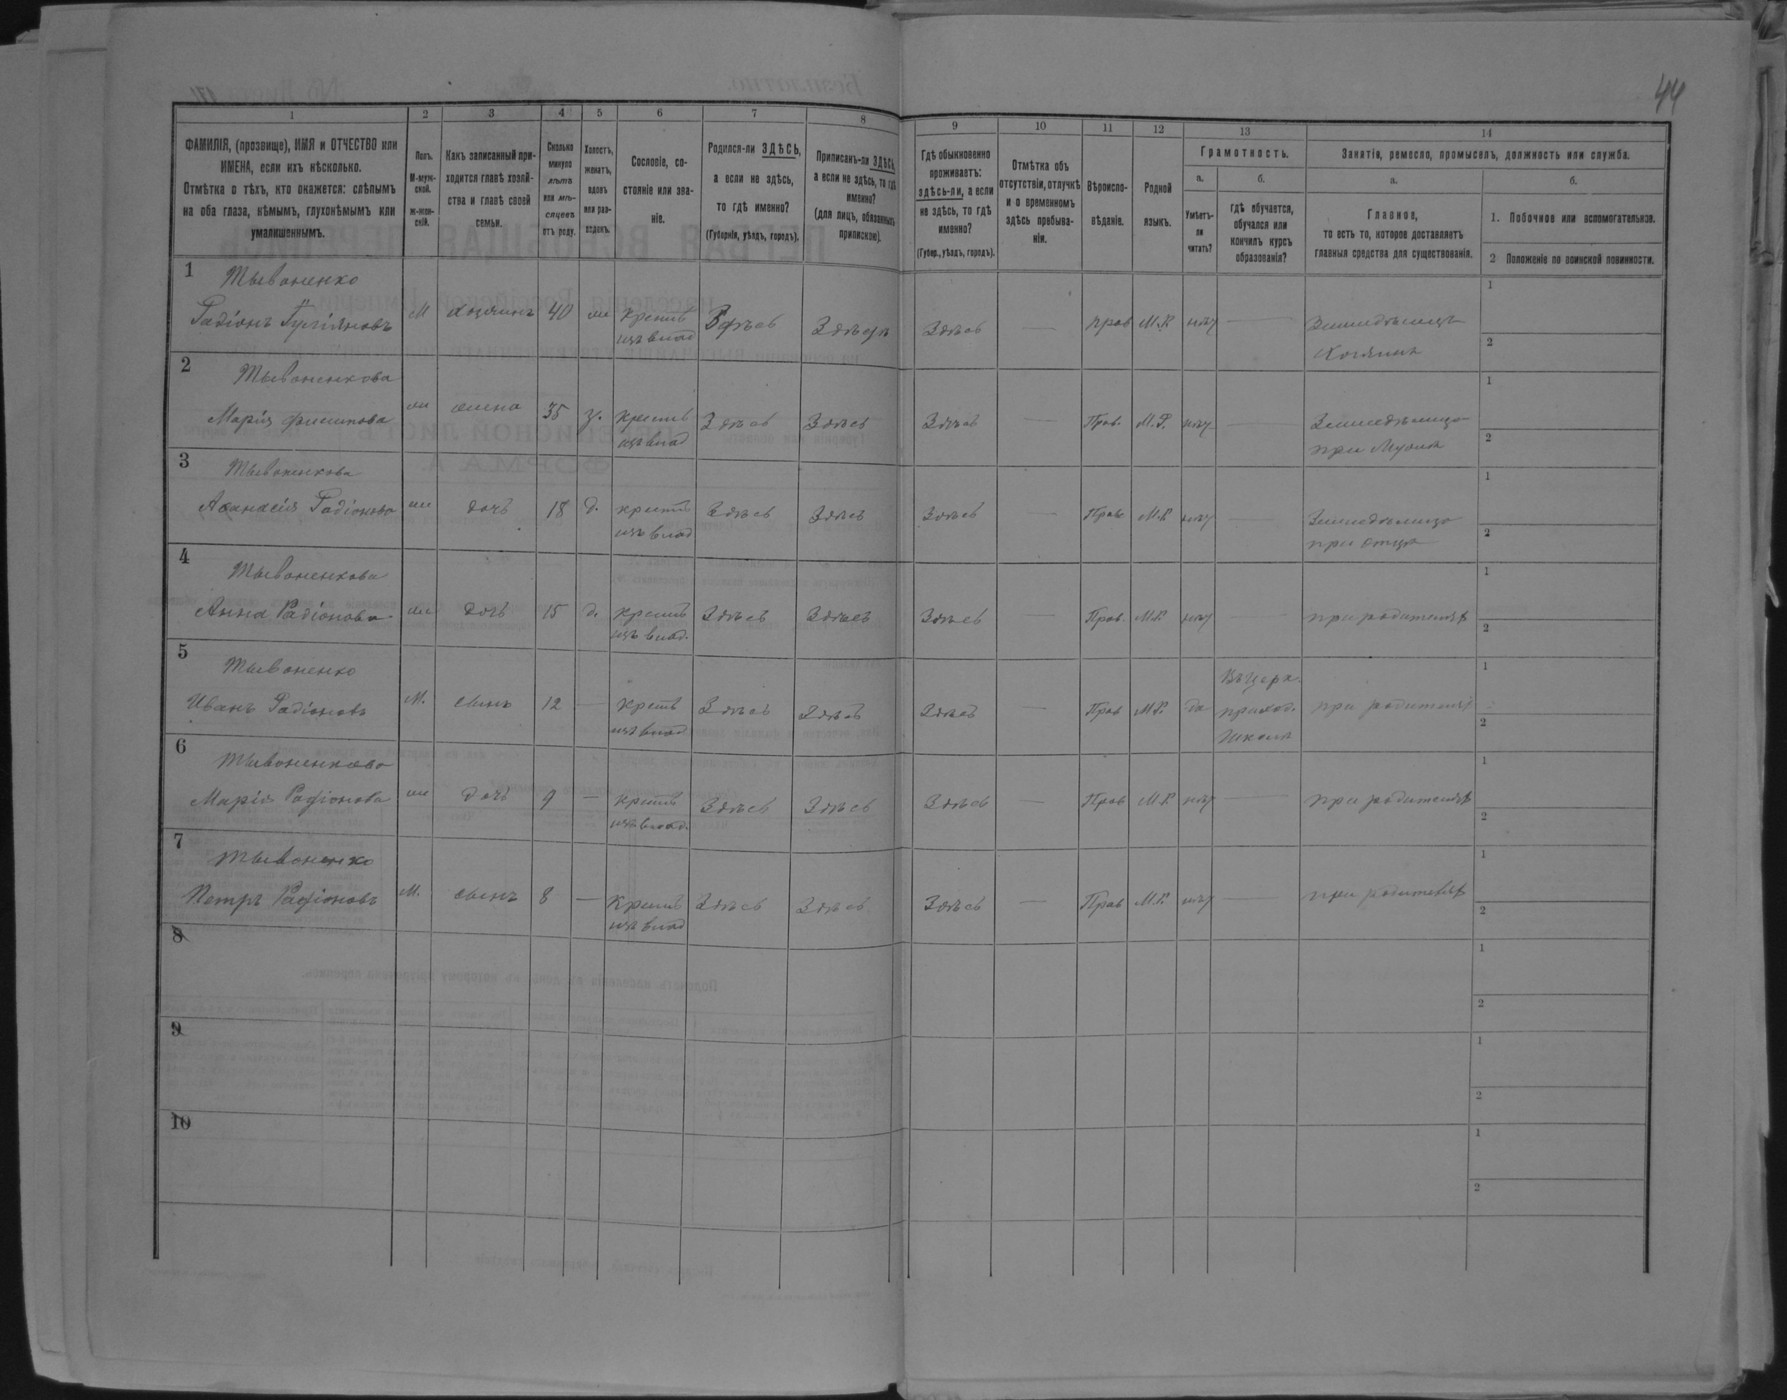 44
1 2 3 4 5 6 7 8 9 10 11 12 13 14
ФАМИЛІЯ, (прозвище), ИМЯ и ОТЧЕСТВО или
ИМЕНА, если ихъ нѣсколько.
Отмѣтка о тѣхъ, кто окажется: слѣпымъ
на оба глаза, нѣмымъ, глухонѣмымъ или
умалишеннымъ.
Полъ.
М-муж-
ской.
ж-жен-
скій.
Какъ записанный при-
ходится главѣ хозяй-
ства и главѣ своей
семьи.
Сколько
минуло
лѣтъ
или мѣ-
сяцевъ
отъ роду.
Холостъ,
женатъ,
вдовъ
или раз-
веденъ.
Сословіе, со-
стояніе или зва-
ніе.
Родился-ли ЗДѢСЬ,
а если не здѣсь,
то гдѣ именно?
(Губернія, уѣздъ, городъ).
Приписанъ-ли ЗДѢСЬ,
а если не здѣсь, то гдѣ
именно?
(для лицъ, обязанныхъ
припискою).
Гдѣ обыкновенно
проживаетъ:
здѣсь-ли, а если
не здѣсь, то гдѣ
именно?
(Губер., уѣздъ, городъ).
Отмѣтка объ
отсутствіи, отлучкѣ
и о временномъ
здѣсь пребыва-
ніи.
Вѣроиспо-
вѣданіе.
Родной
языкъ.
Грамотность.
а.
Умѣетъ-
ли
читать?
б.
гдѣ обучается,
обучался или
кончилъ курсъ
образованія?
Занятіе, ремесло, промыселъ, должность или служба.
а.
Главное,
то есть то, которое доставляетъ
главныя средства для существованія.
б.
1. Побочное или вспомогательное.
2 Положеніе по воинской повинности.
1
Тывоненко
Радіонъ М хозяинъ 40 ж крест Здѣсь Здѣсь Здѣсь — прав М.Р. нѣт — Земледѣлецъ
изъ влад Хозяинъ
1
2
2
Тывоненкова
Марія ж жена 35 з. крест Здѣсь Здѣсь Здѣсь — Прав. М.Р. нѣт — Земледѣлица
изъ влад при Мужѣ
1
2
3
Тывоненкова
Афанасія Радіонова ж дочь 18 д. крест Здѣсь Здѣсь Здѣсь — Прав М.Р. нѣт — Земледѣлица
изъ влад при отцѣ
1
2
4
Тывоненкова
Анна Радіонова ж дочь 15 д. крест Здѣсь Здѣсь Здѣсь — Прав. М.Р. нѣт — при родителях
изъ влад.
1
2
5
Тывоненко
Иванъ Радіоновъ М. сынъ 12 — крест Здѣсь Здѣсь Здѣсь — Прав М.Р. да Въ церк. приход. Школѣ при родителях
изъ влад
1
2
6
Тывоненкова
Марія Радіонова ж дочь 9 — крест Здѣсь Здѣсь Здѣсь — Прав М.Р. нѣт — при родителях
изъ влад.
1
2
7
Тывоненко
Петръ Радіоновъ М. сынъ 8 — Крест Здѣсь Здѣсь Здѣсь — Прав М.Р. нѣт — при родителях
изъ влад
1
2
8
1
2
9
1
2
10
1
2